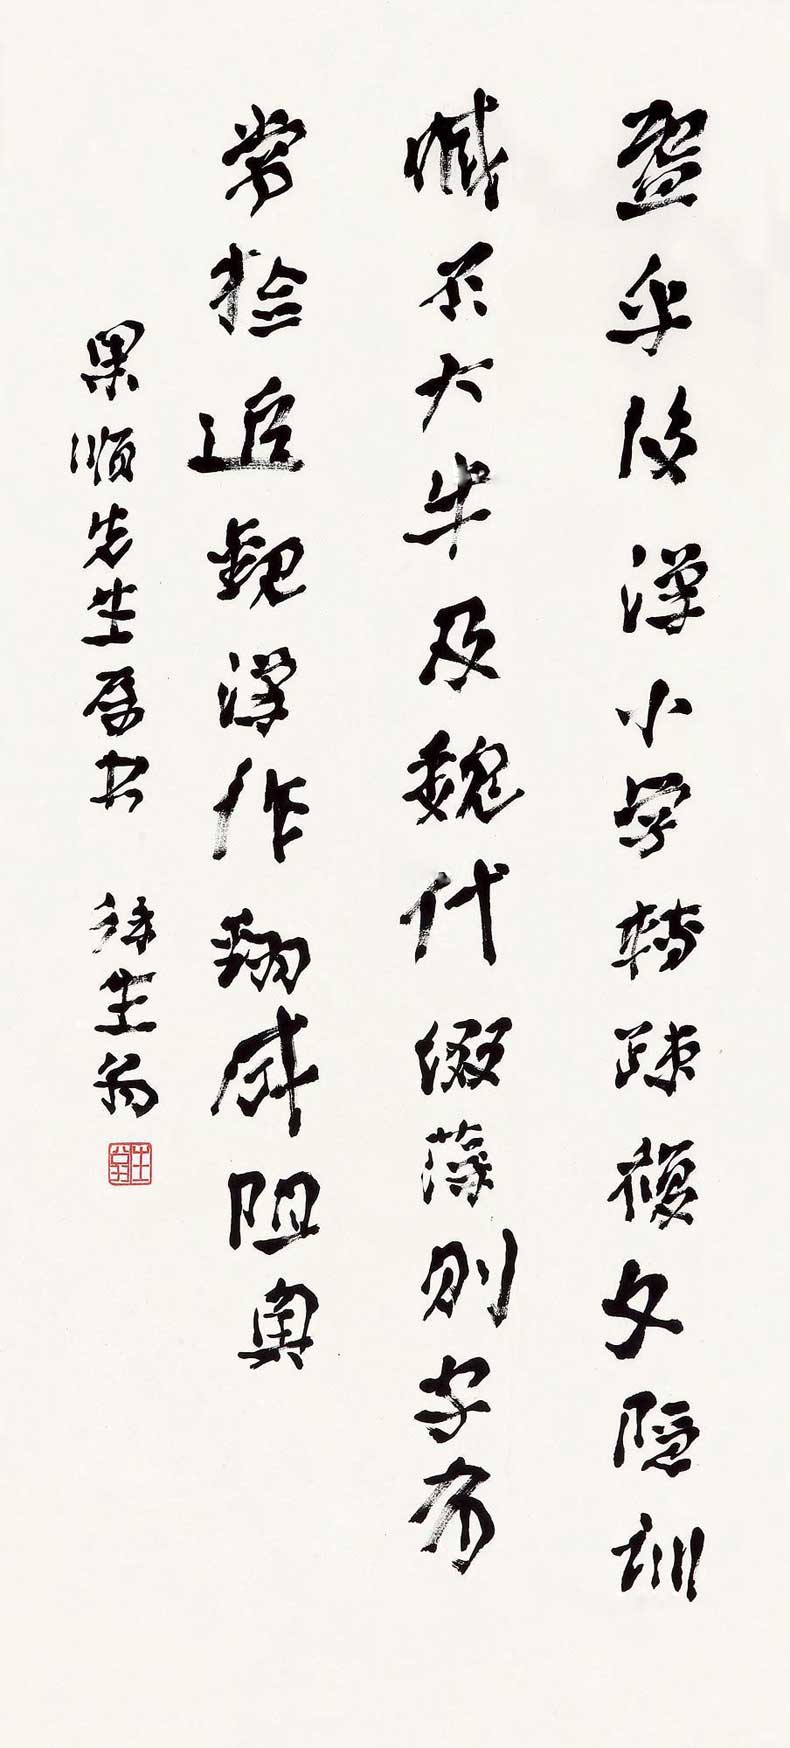 暨乎後漢小學轉疎複文隱訓
臧否大半及魏代綴藻則字有
常檢追觀漢作翻成阻奧
果順先生屬書 徐生翁
生翁